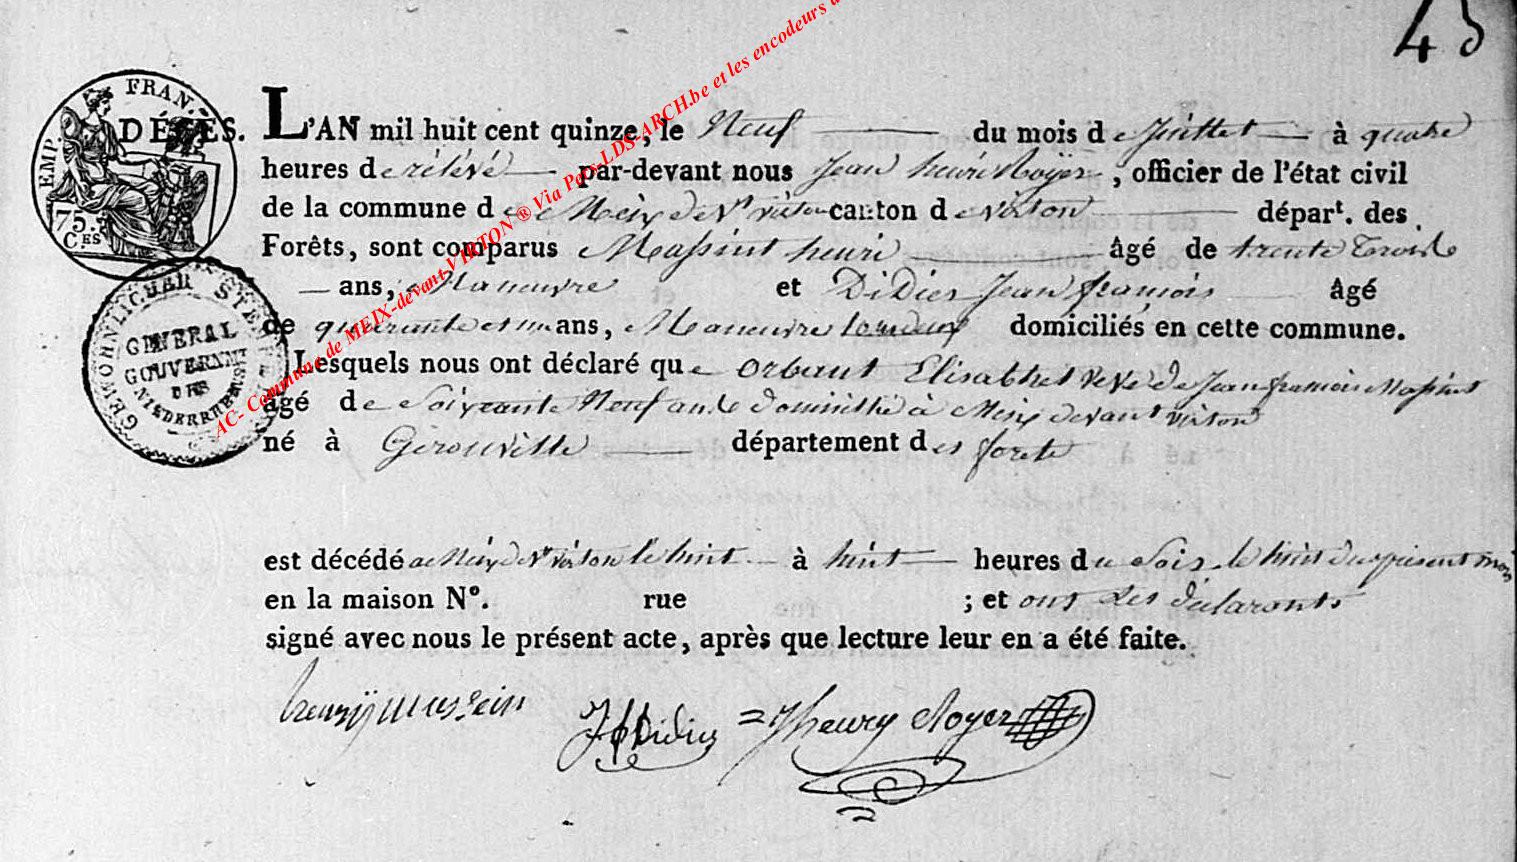 45
EMP. FRAN.
75. CES
GERMOHNLICHER STEMPEL
GENERAL
GOUVERNMT
DES
NIEDERRHEINS
AC- Commune de MEIX-devant-VIRTON ® Via Pers-LDS-ARCH.be et les encodeurs
DÉCÈS. L'AN mil huit cent quinze, le Neuf du mois de Juillet à quatre
heures de rélévé par-devant nous Jean henri Royer, officier de l'état civil
de la commune de Meix de Vt virton canton de virton départ. des
Forêts, sont comparus Massint henri âgé de trente trois
ans, Maneuvre et Didier Jean framois âgé
de quarante et un ans, Maneuvre tourdeux domiciliés en cette commune.
Lesquels nous ont déclaré que orbant Elisabhet veve de Jean framois Massint
âgé de Soixante Neuf ans domicilié à Meix devant virton
né à Gérouville département des forets
est décédé a Meix de Vt virton le huit à huit heures du Soir le huit du présent mois
en la maison N°. rue ; et ont les déclarants
signé avec nous le présent acte, après que lecture leur en a été faite.
henry massein JF Didier = J henry Royer